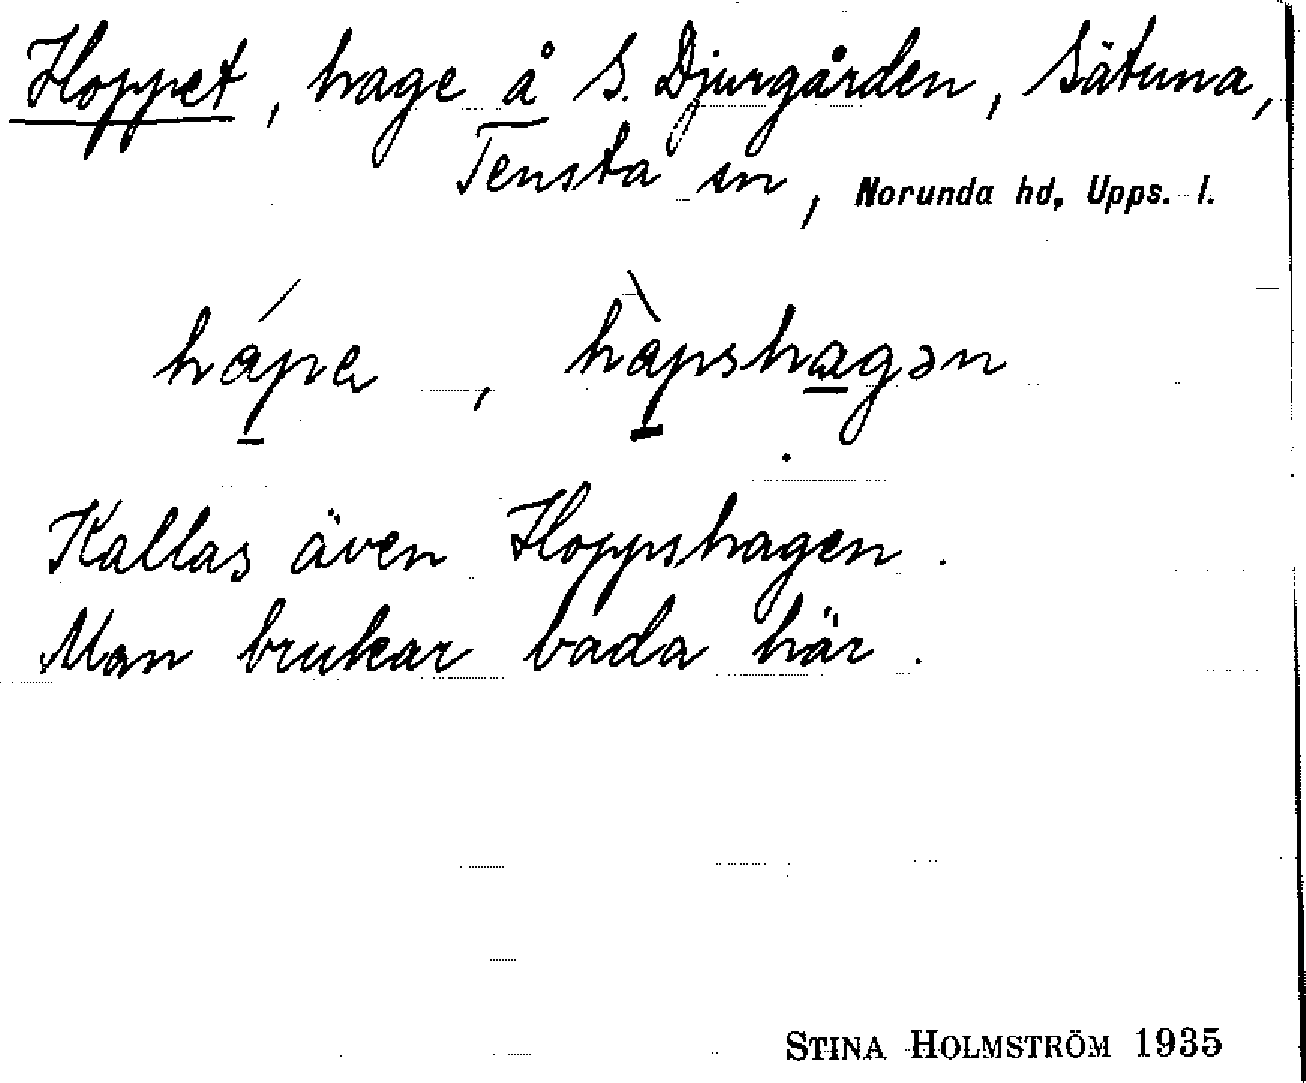 Hoppet, hage å S. Djurgården, Sätuna,
Tensta sn, Norunda hd, Upps. l.
hápa, hàpshagən
Kallas även Hoppshagen.
Man brukar bada här.
STINA HOLMSTRÖM 1935